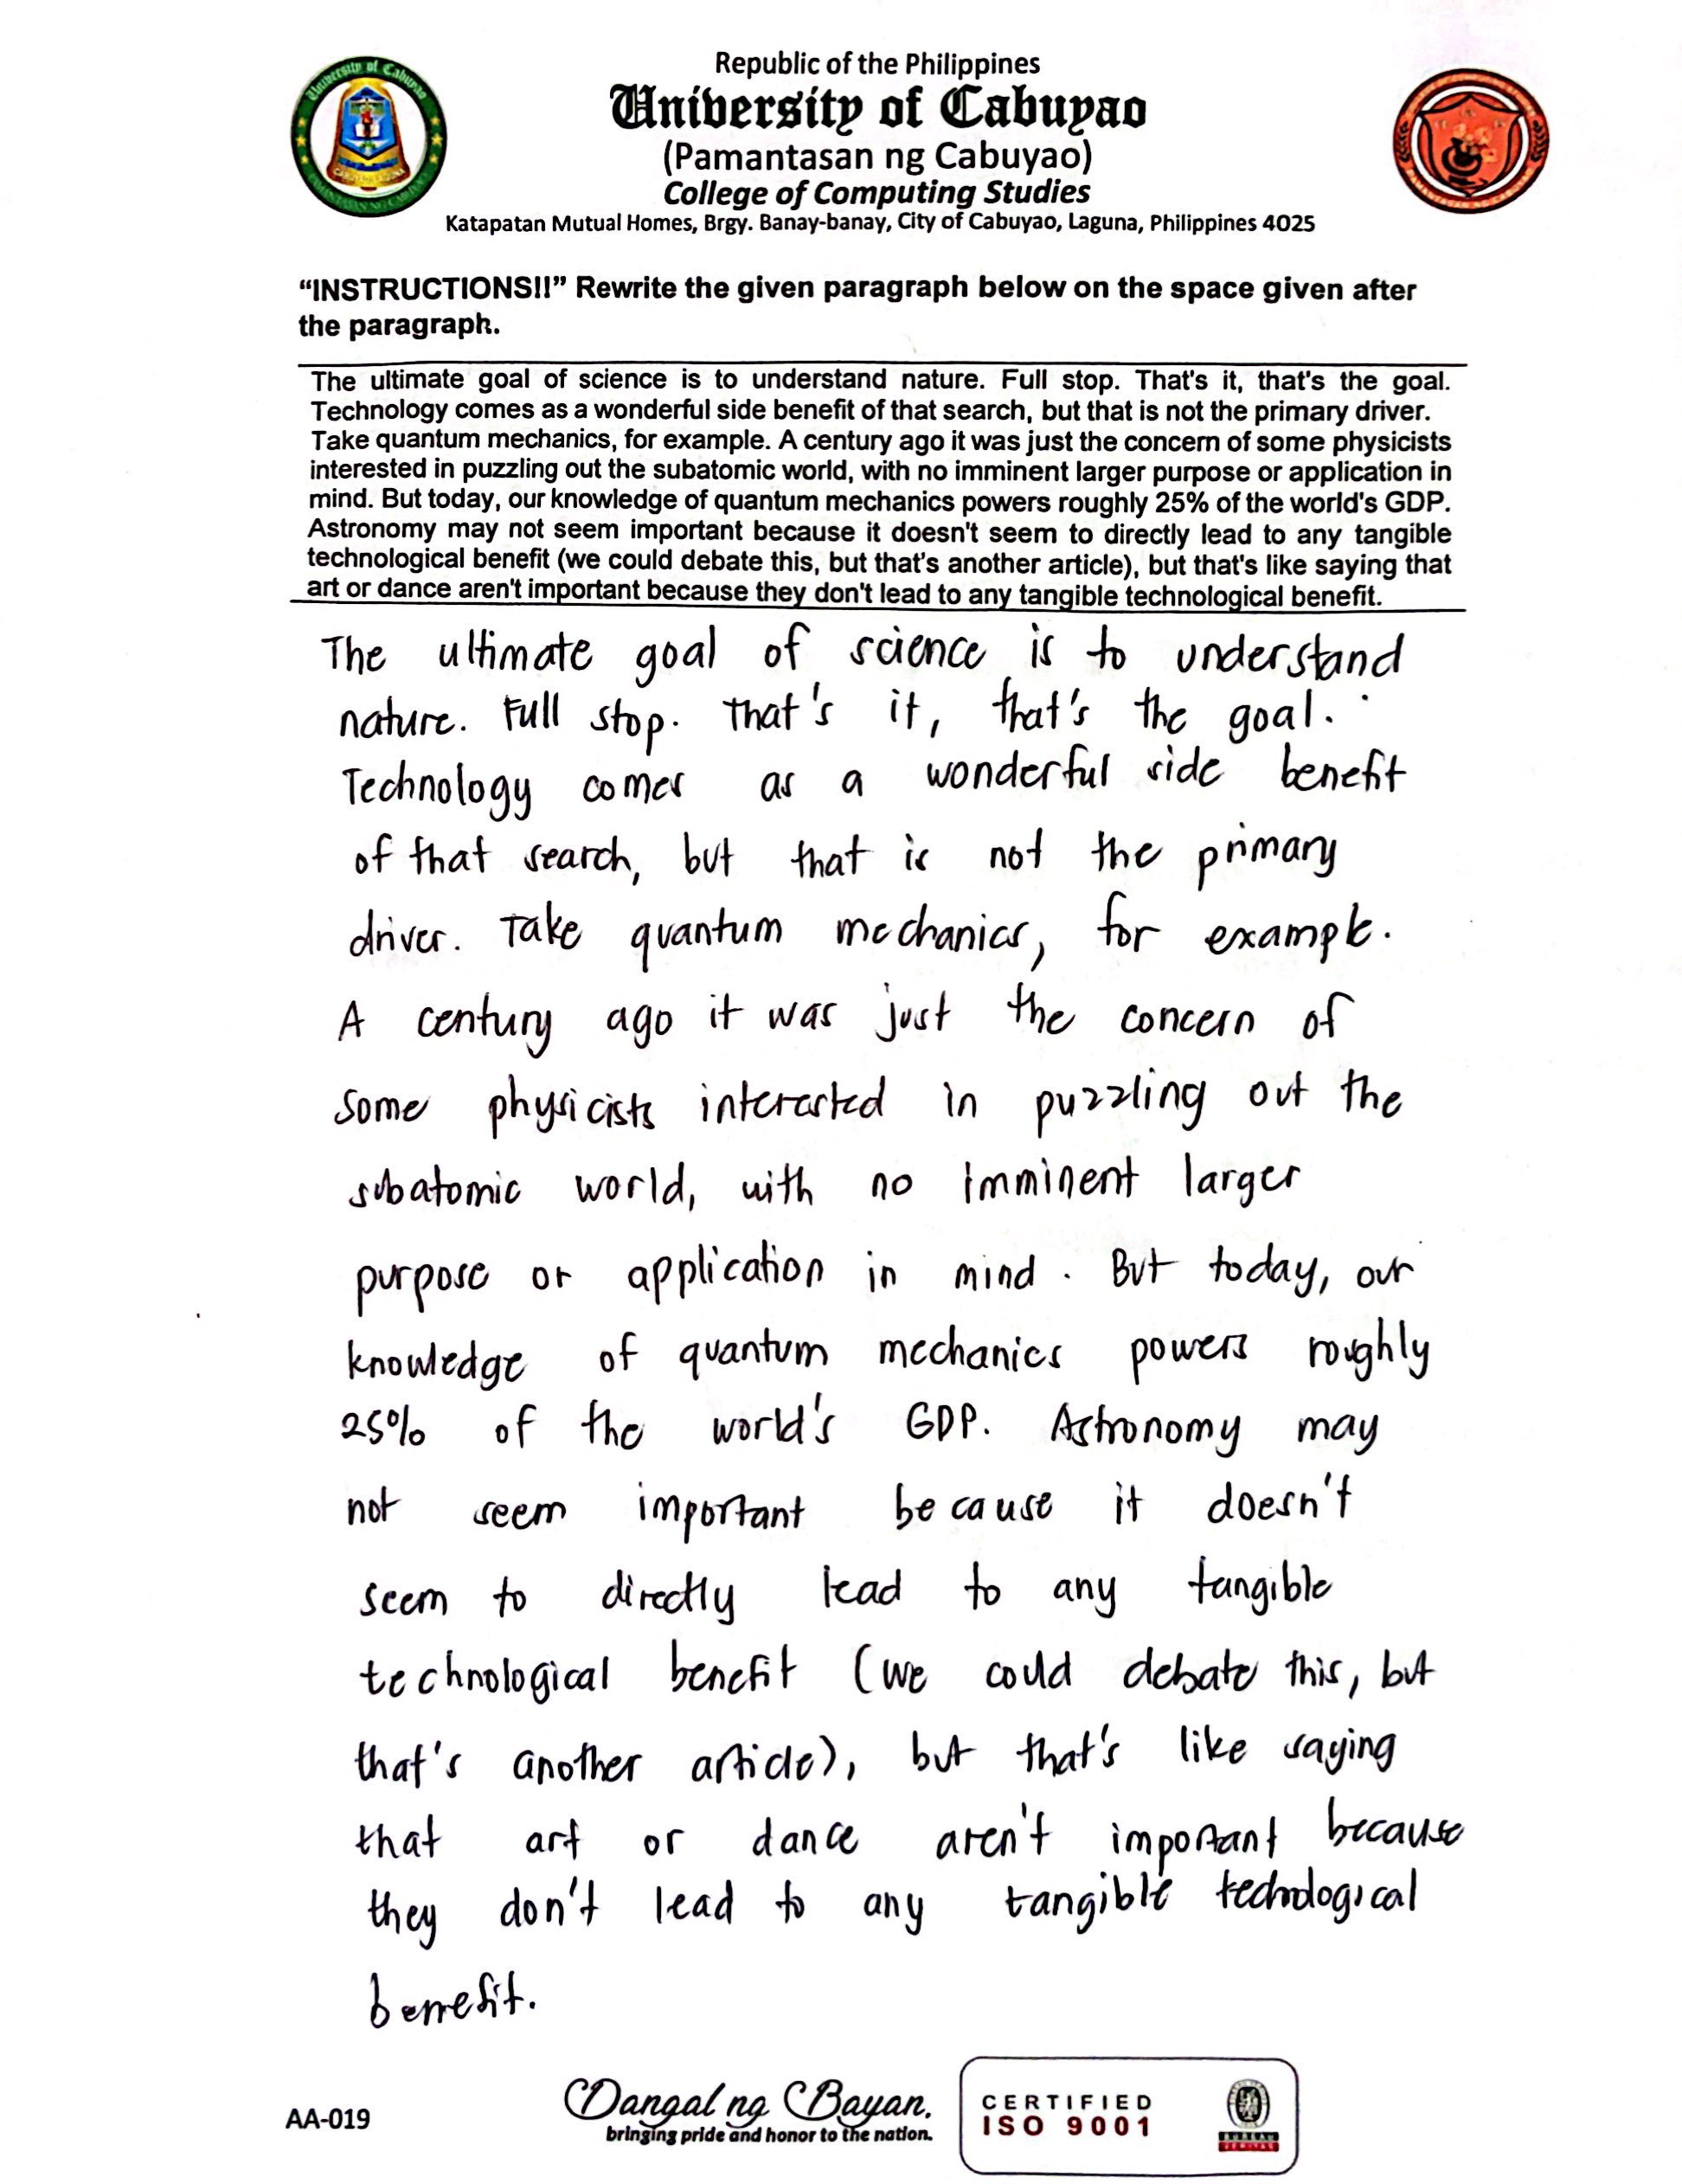 Republic of the Philippines
University of Cabuyao
(Pamantasan ng Cabuyao)
College of Computing Studies
Katapatan Mutual Homes, Brgy. Banay-banay, City of Cabuyao, Laguna, Philippines 4025
“INSTRUCTIONS!!” Rewrite the given paragraph below on the space given after
the paragraph.
The ultimate goal of science is to understand nature. Full stop. That's it, that's the goal.
Technology comes as a wonderful side benefit of that search, but that is not the primary driver.
Take quantum mechanics, for example. A century ago it was just the concern of some physicists
interested in puzzling out the subatomic world, with no imminent larger purpose or application in
mind. But today, our knowledge of quantum mechanics powers roughly 25% of the world's GDP.
Astronomy may not seem important because it doesn't seem to directly lead to any tangible
technological benefit (we could debate this, but that's another article), but that's like saying that
art or dance aren't important because they don't lead to any tangible technological benefit.
The ultimate goal of science is to understand
nature. Full stop. That's it, that's the goal.
Technology comes as a wonderful side benefit
of that search, but that is not the primary
driver. Take quantum mechanics, for example.
A century ago it was just the concern of
some physicists interested in puzzling out the
subatomic world, with no imminent larger
purpose or application in mind. But today, our
knowledge of quantum mechanics powers roughly
25% of the world's GDP. Astronomy may
not seem important because it doesn't
seem to directly lead to any tangible
technological benefit (we could debate this, but
that's another article), but that's like saying
that art or dance aren't important because
they don't lead to any tangible technological
benefit.
AA-019
Dangal ng Bayan.
bringing pride and honor to the nation.
CERTIFIED
ISO 9001